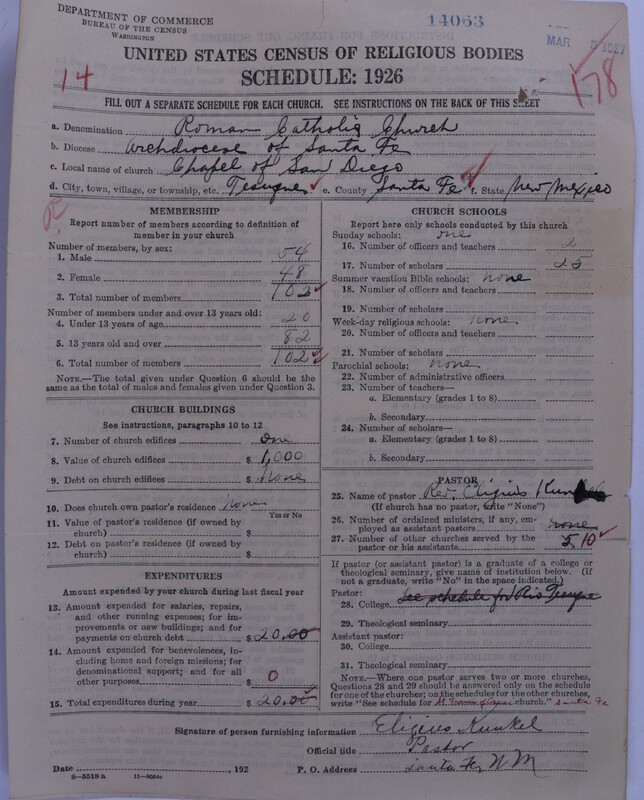 DEPARTMENT OF COMMERCE
BUREAU OF THE CENSUS
WASHINGTON
14063
MAR 5 1927
UNITED STATES CENSUS OF RELIGIOUS BODIES
SCHEDULE: 1926
14
178
FILL OUT A SEPARATE SCHEDULE FOR EACH CHURCH. SEE INSTRUCTIONS ON THE BACK OF THIS SHEET
a. Denomination Roman Catholic Church
b. Diocese Archdiocese of Santa Fe
c. Local name of church Chapel of San Diego
d. City, town, village, or township, etc. Tesuque e. County Santa Fe f. State New Mexico
MEMBERSHIP
Report number of members according to definition of
member in your church
Number of members, by sex:
1. Male 54
2. Female 48
3. Total number of members 102
Number of members under and over 13 years old:
4. Under 13 years of age 20
5. 13 years old and over 82
6. Total number of members 102
NOTE.—The total given under Question 6 should be the
same as the total of males and females given under Question 3.
CHURCH BUILDINGS
See instructions, paragraphs 10 to 12
7. Number of church edifices One
8. Value of church edifices $ 1,000
9. Debt on church edifices $ None
10. Does church own pastor's residence None
Yes or No
11. Value of pastor's residence (if owned by
church) $
12. Debt on pastor's residence (if owned by
church) $
EXPENDITURES
Amount expended by your church during last fiscal year
13. Amount expended for salaries, repairs,
and other running expenses; for im-
provements or new buildings; and for
payments on church debt $ 20.00
14. Amount expended for benevolences, in-
cluding home and foreign missions; for
denominational support; and for all
other purposes $ 0
15. Total expenditures during year $ 20.00
CHURCH SCHOOLS
Report here only schools conducted by this church
Sunday schools: one
16. Number of officers and teachers 2
17. Number of scholars 25
Summer vacation Bible schools: none
18. Number of officers and teachers
19. Number of scholars
Week-day religious schools: none
20. Number of officers and teachers
21. Number of scholars
Parochial schools: none
22. Number of administrative officers
23. Number of teachers—
a. Elementary (grades 1 to 8)
b. Secondary
24. Number of scholars—
a. Elementary (grades 1 to 8)
b. Secondary
PASTOR
25. Name of pastor Rev. Eligius Kunkel
(If church has no pastor, write "None")
26. Number of ordained ministers, if any, em-
ployed as assistant pastors none
27. Number of other churches served by the
pastor or his assistants 5 10
If pastor (or assistant pastor) is a graduate of a college or
theological seminary, give name of institution below. (If
not a graduate, write "No" in the space indicated.)
Pastor: See schedule for
28. College
29. Theological seminary
Assistant pastor:
30. College
31. Theological seminary
NOTE.—Where one pastor serves two or more churches,
Questions 28 and 29 should be answered only on the schedule
for one of the churches; on the schedules for the other churches,
write "See schedule for church." Santa Fe
Signature of person furnishing information Eligius Kunkel
Official title Pastor
Date , 192 P. O. Address Santa Fe, N M
8—5518 a 11—9056c